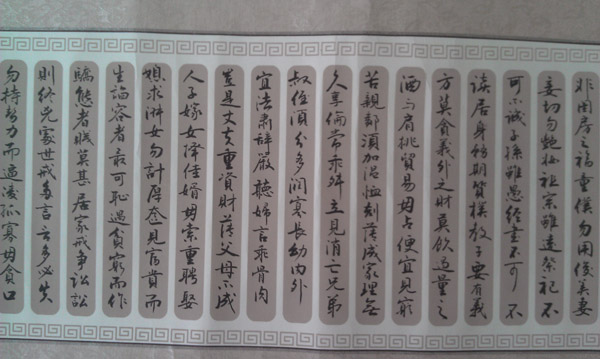 非閨房之福童僕勿用俊美妻
妾切勿艳妝祖宗雖遠祭祀不
可不誠子孫雖愚經書不可不
读居身務期質樸教子要有義
方莫貪義外之財莫飲過量之
酒与肩挑貿易毋占便宜見窮
苦親鄰須加温恤刻薄成家理無
久享倫常乖舛立見消亡兄弟
叔侄須分多润寡長幼内外
宜法肅辞嚴聽婦言乖骨肉
豈是丈夫重資財薄父母不成
人子嫁女擇佳婿毋索重聘娶
媳求淑女勿計厚奩見富貴而
生諂容者最可恥遇貧窮而作
驕態者賤莫甚居家戒争訟訟
則終凶處世戒多言言多必失
勿恃勢力而逼凌孤寡毋貪口